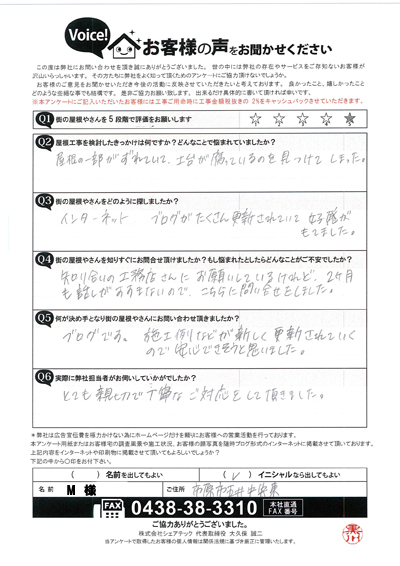 Voice!
お客様の声をお聞かせください
この度は弊社にお問い合わせを頂き誠にありがとうございました。世の中には弊社の存在やサービスをご存知ないお客様が
沢山いらっしゃいます。その方たちに弊社をよく知って頂くためのアンケートにご協力頂けないでしょうか。
お客様のご意見をお聞かせいただき今後の活動に反映させていただきたいと考えております。良かったこと、嬉しかったこと
どのような些細な事でも結構です。是非ご協力お願い致します。出来るだけ具体的に書いて頂ければ幸いです。
※本アンケートにご記入いただいたお客様には工事ご用命時に工事金額税抜きの 2%をキャッシュバックさせていただきます。
Q1 街の屋根やさんを5段階で評価をお願いします ☆ ☆ ☆ ☆ ☆
Q2 屋根工事を検討したきっかけは何ですか？どんなことで悩まれていましたか？
屋根の一部がずれていて、土台が腐っているのを見つけてしまった。
Q3 街の屋根やさんをどのように探しましたか？
インターネット ブログがたくさん更新されていて 好感が
もてました。
Q4 街の屋根やさんを知りすぐにお問合せ頂けましたか？もし悩まれたとしたらどんなことがご不安でしたか？
知り合いの工務店さんに お願いしているけれど、2ヶ月
も話しがすすまないので、こちらに問い合せをしました。
Q5 何が決め手となり街の屋根やさんにお問い合わせ頂きましたか？
ブログです。 施工例などが新しく更新されていく
ので 安心できそうと思いました。
Q6 実際に弊社担当者がお伺いしていかがでしたか？
とても親切で丁寧なご対応をして頂きました。
＊弊社は広告宣伝費を極力かけない為にホームページだけを頼りにお客様への営業活動を行っております。
本アンケート用紙またはお客様宅の調査風景や施工状況、お客様の顔写真を随時ブログ形式のインターネットに掲載させて頂いております。
上記内容をインターネットや印刷物に掲載させて頂いてもよろしいでしょうか？
下記の中から〇印をお付下さい。
( ) 名前を出してもよい ( ✓ ) イニシャルなら出してもよい
名前 M 様 ご住所 市原市
FAX 0438-38-3310 本社直通 FAX番号
ご協力ありがとうございました。
株式会社シェアテック 代表取締役 大久保 誠二
当アンケートで取得したお客様の個人情報は関係法規に基づき厳正に管理いたします。